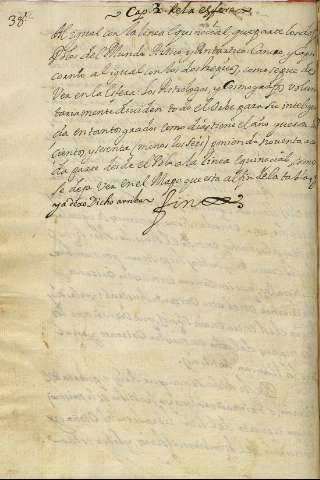 38
Cap. 2 de la esfera
Al igual con la linea Equinocial, que parte los dos
Polos del Mundo Artico y Antartico: Cancro y Capri
cornio al igual con los dos tropicos, como se puede
Ver en la Esfera: los Astrologos, y Cosmografos, volun
tariamente dividen todo el Orbe para su intelige
da en tantos grados como dias tiene el año que son tre
cientos, y sesenta (minos los seis) poniendo noventa a ca
da parte desde el Polo a la linea Equinocial, como
se deja Ver en el Mapa que esta al fin de la tabla q
ya dexo Dicho arriba
Fin